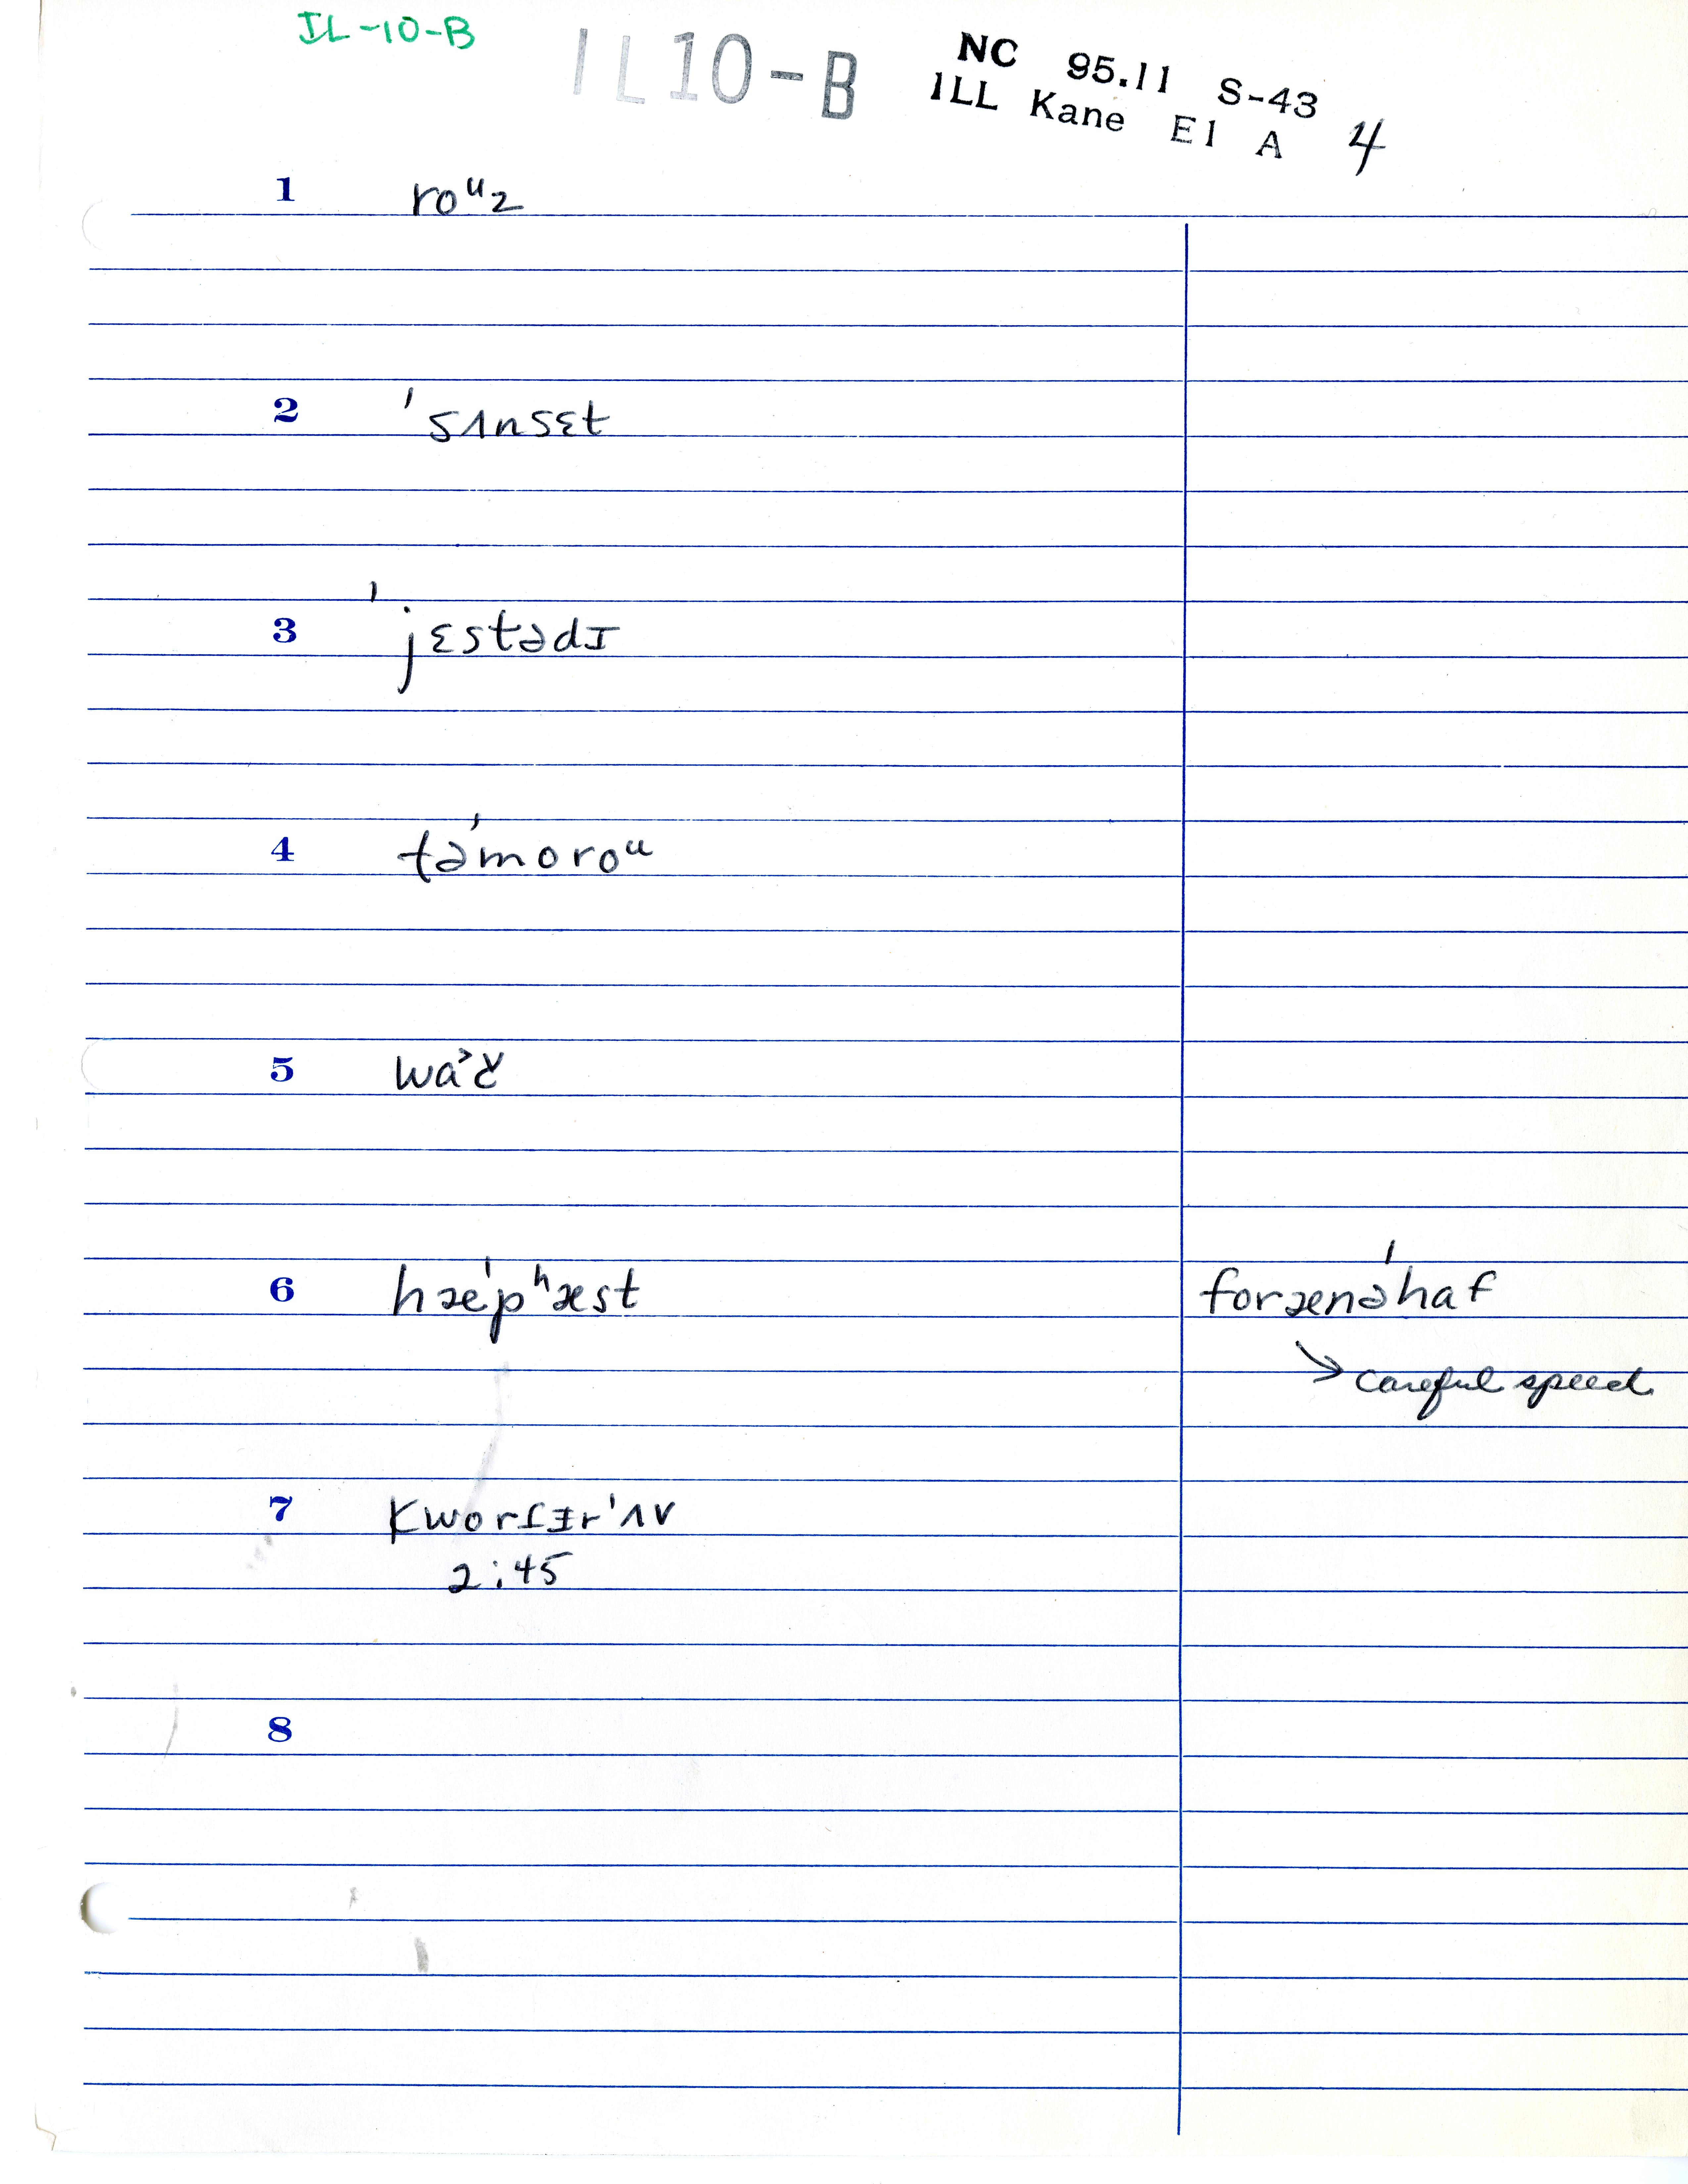 IL-10-B
IL10-B
NC 95.11 S-43
ILL Kane El A 4
1 roᶸz
2 ˈsʌnsɛt
3 ˈjɛstədɪ
4 təˈmoroᶸ
5 wa˃ɚ
6 hæˈpʰæst forænəˈhaf
→ careful speed
7 kworɾɪrˈʌv
2:45
8